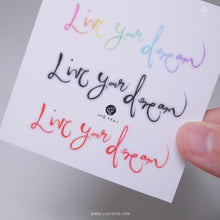 Live your dream
Live your dream
Live your dream
WWW.LAZYDUO.COM